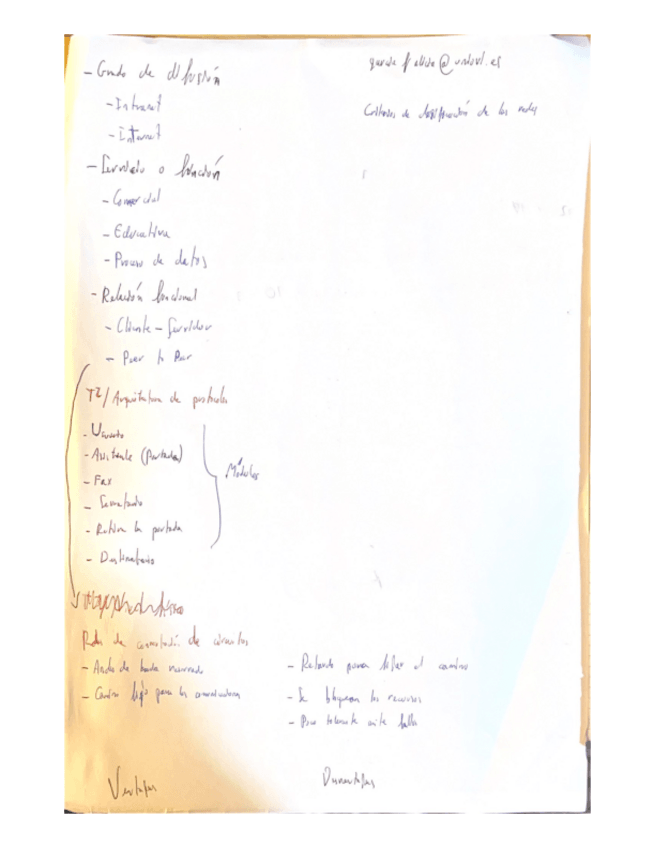 - Grado de difusión
- Intranet
- Internet
Criterios de clasificación de las redes
- Servicio o función
- Comercial
- Educativa
- Proceso de datos
- Relación funcional
- Cliente - Servidor
- Peer to Peer
T2/ Arquitectura de protocolos
- Usuario
- Asistente (portada)
- Fax
- Secretario
- Retira la portada
- Destinatario
Módulos
Redes de conmutación de circuitos
- Ancho de banda reservado
- Camino fijo para los conmutadores
- Retardo para fijar el camino
- Se bloquean los recursos
- Poco tolerante ante fallo
Ventajas
Desventajas